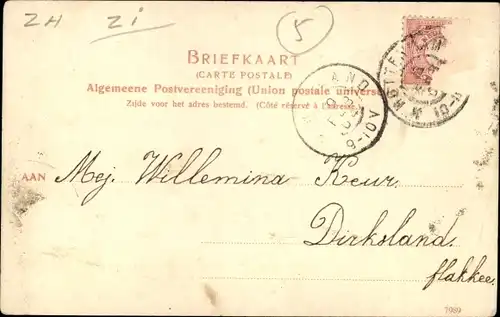 ZH ZI 5
BRIEFKAART
(CARTE POSTALE)
Algemeene Postvereeniging (Union postale universe
Zijde voor het adres bestemd. (Côté réservé à l'adresse)
AAN Mej. Willemina Keur.
Dirksland.
flakkee.
7989